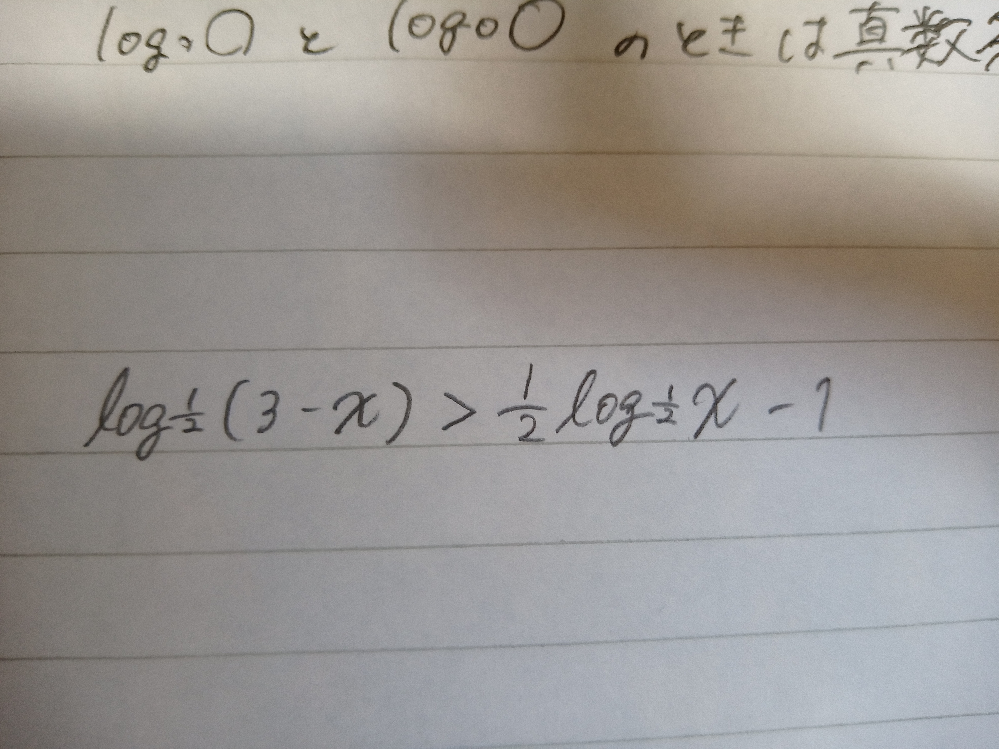 log。〇 と log〇〇 のときは真数
log½(3-x) > ½ log½x - 1